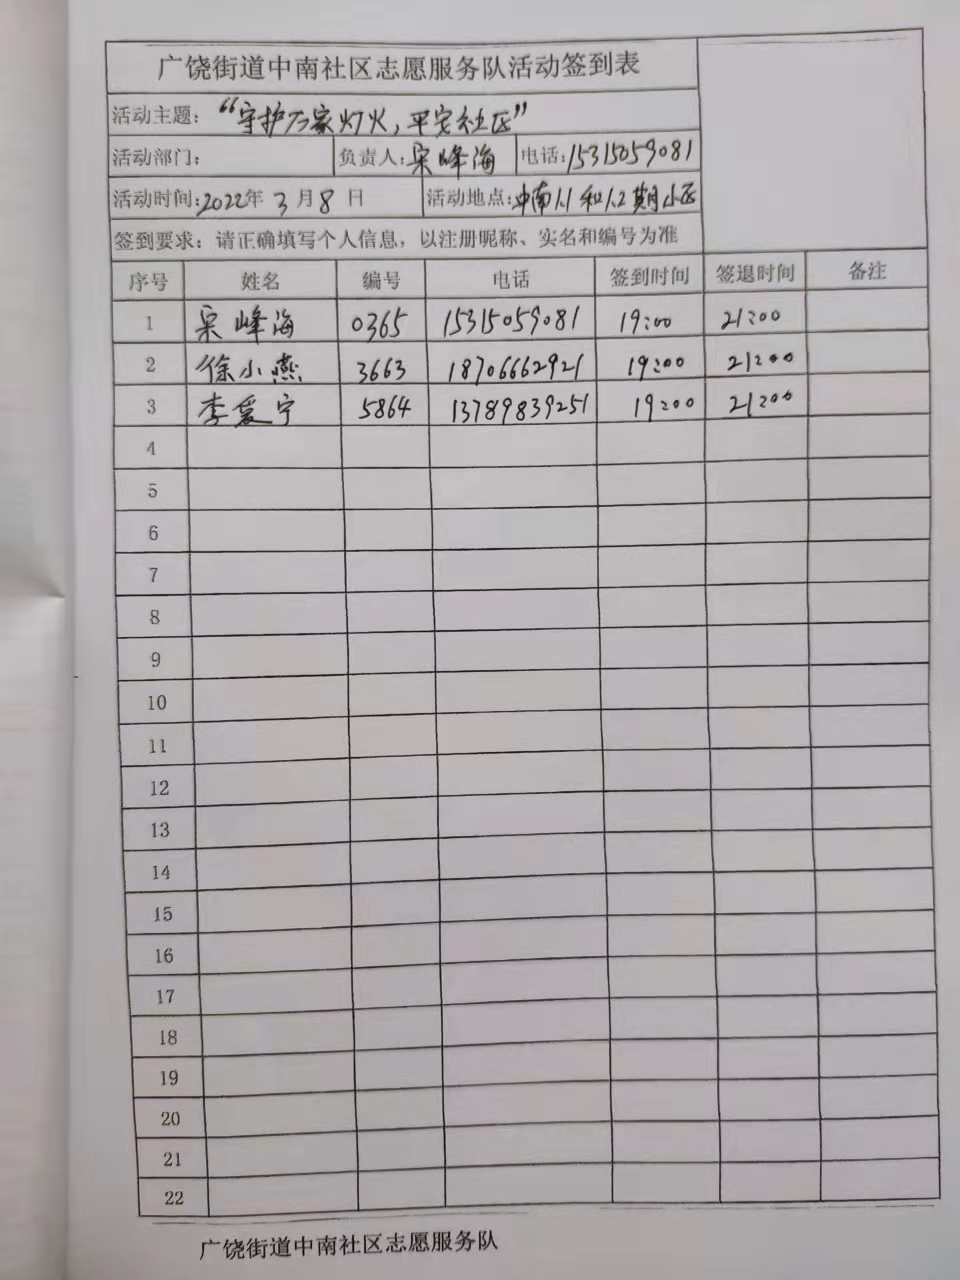 广饶街道中南社区志愿服务队活动签到表
活动主题：“守护万家灯火，平安社区”
活动部门： 负责人：宋峰海 电话：15315059081
活动时间：2022年3月8日 活动地点：中南1.1和1.2期小区
签到要求：请正确填写个人信息，以注册昵称、实名和编号为准
序号 姓名 编号 电话 签到时间 签退时间 备注
1 宋峰海 0365 15315059081 19:00 21:00
2 徐小燕 3663 18706662921 19:00 21:00
3 李爱宁 5864 13789839251 19:00 21:00
4
5
6
7
8
9
10
11
12
13
14
15
16
17
18
19
20
21
22
广饶街道中南社区志愿服务队